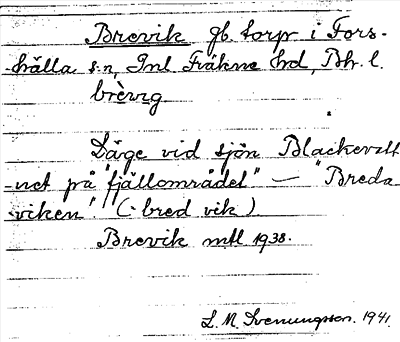 Brevik gb. torp i Fors-
hälla s:n, Inl. Fräkne hd, Bh. l.
brèvig
Läge vid sjön Blackevatt-
net på "fjällområdet" — "Breda
viken". (- bred vik)
Brevik mtl 1938.
L. M. Svenungsson. 1941.